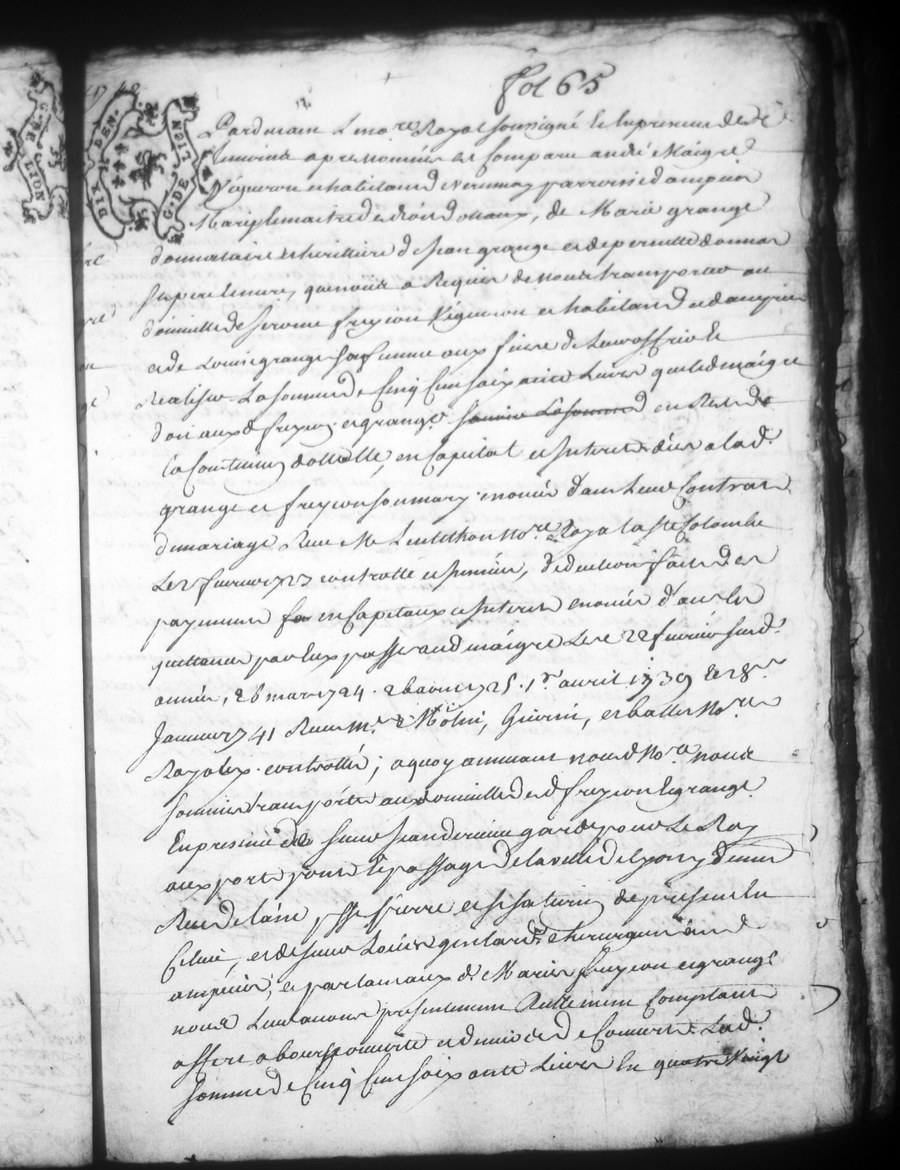 fol 65
DIX DEN.
G. DE LION
LION
Pardevant Le no.re Royal soussigné Et En presence des
temoins apres nommés Est Comparu andré Maigre
Vigneron et habitant d parroisse d'ampuis
Mary et maitre des droits dotaux, de Marie grange
donnataire et heritiere de Jean grange et de pernette donnas
ses pere et mere, qui nous a Requis de nous transporter au
domicille de Jerome freycon Vigneron et habitant dud ampuis
et de Louise grange sa femme aux fins de Leur offrir et
Realiser La somme de Cinq Cens soixante Livres que led maigre
doit auxd freycon et grange en Reste de
la Constitution dottalle, en Capital et Interets dües a lad.
grange et freycon son mary enoncée dans Leur Contrat
de mariage Receu M No.re Royal a Ste Colombe
Le fevrier 1723 controllé et insinué, deduction faite des
payemens en Capitaux et Interets enoncés dans les
quittances par Eux passé aud maigre Les 22 fevrier susd.
année, 26 mars 1724. 26 aoust 1725. 1er avril 1739 et 8.e
Janvier 1741 Receus M.es Guerin, et ballet No.res
Royaux controllés; a quoy adherant nousd No.re nous
sommes transportés au domicille desd freycon et grange
En presence de sieur Jean garde pour Le Roy
aux portes pour le passage de la ville de Lyon y demt
Rue de Laine psse St Pierre et St Saturnin de present En
Ce lieu, et de sieur Louis chirurgien aud
ampuis; et parlant aux de Maries freycon et grange
nous Leur avons presentement Reellement Comptant
offert a bourse ouverte et deniers decouverts Lad.
somme de Cinq Cens soixante Livres En quatre Vingt